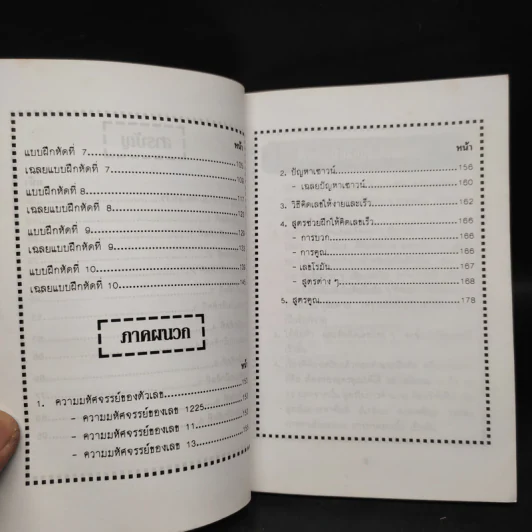 หน้า
แบบฝึกหัดที่ 7
เฉลยแบบฝึกหัดที่ 7
แบบฝึกหัดที่ 8
เฉลยแบบฝึกหัดที่ 8
แบบฝึกหัดที่ 9
เฉลยแบบฝึกหัดที่ 9
แบบฝึกหัดที่ 10
เฉลยแบบฝึกหัดที่ 10
ภาคผนวก
1. ความมหัศจรรย์ของตัวเลข
- ความมหัศจรรย์ของเลข 1225
- ความมหัศจรรย์ของเลข 11
- ความมหัศจรรย์ของเลข 13
หน้า
2. ปัญหาเชาวน์ 156
- เฉลยปัญหาเชาวน์ 160
3. วิธีคิดเลขให้ง่ายและเร็ว 162
4. สูตรช่วยฝึกให้คิดเลขเร็ว 166
- การบวก 166
- การคูณ 166
- เลขโรมัน 167
- สูตรต่าง ๆ 168
5. สูตรคูณ 178